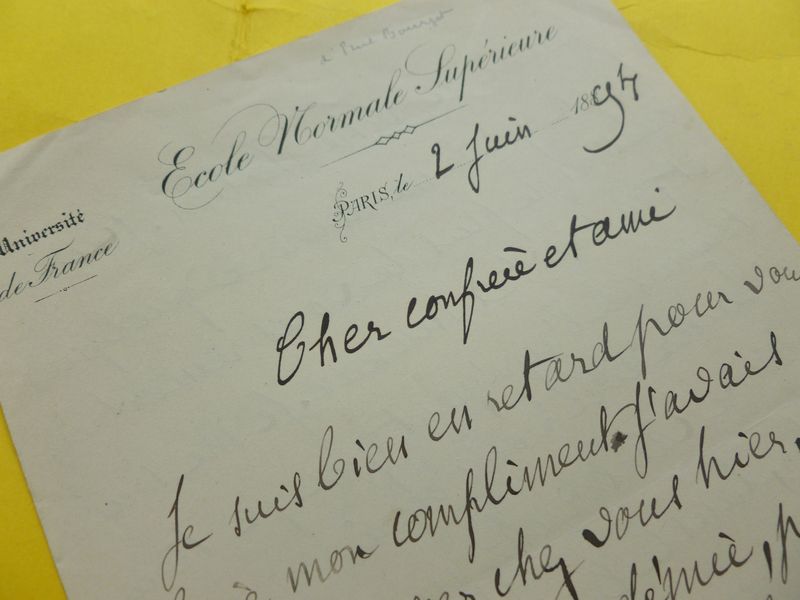 d'Paul Bourget
Ecole Normale Supérieure
Université
de France
PARIS, le 2 Juin 1894
Cher confrère et ami
Je suis bien en retard pour vous
mon compliment. J'avais
chez vous hier,